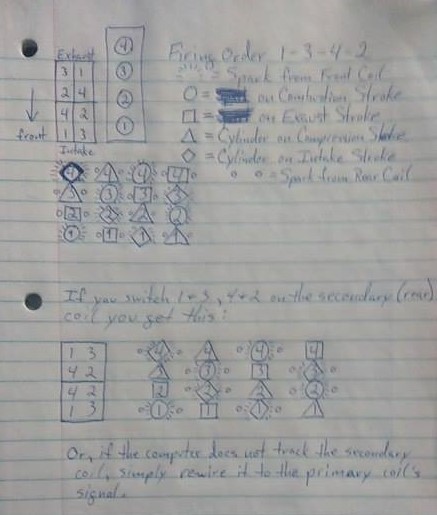 Exhaust
3 1
2 4
4 2
1 3
front
Intake
4
3
2
1
Firing Order 1-3-4-2
= Spark from Front Coil
= on Combustion Stroke
= on Exhaust Stroke
= Cylinder on Compression Stroke
= Cylinder on Intake Stroke
= Spark from Rear Coil
4 4 4 4
3 3 3 3
2 2 2 2
1 1 1 1
If you switch 1+3, 4+2 on the secondary (rear)
coil you get this:
1 3
4 2
4 2
1 3
4 4 4 4
3 3 3 3
2 2 2 2
1 1 1 1
Or, if the computer does not track the secondary
coil, simply rewire it to the primary coil's
signal.